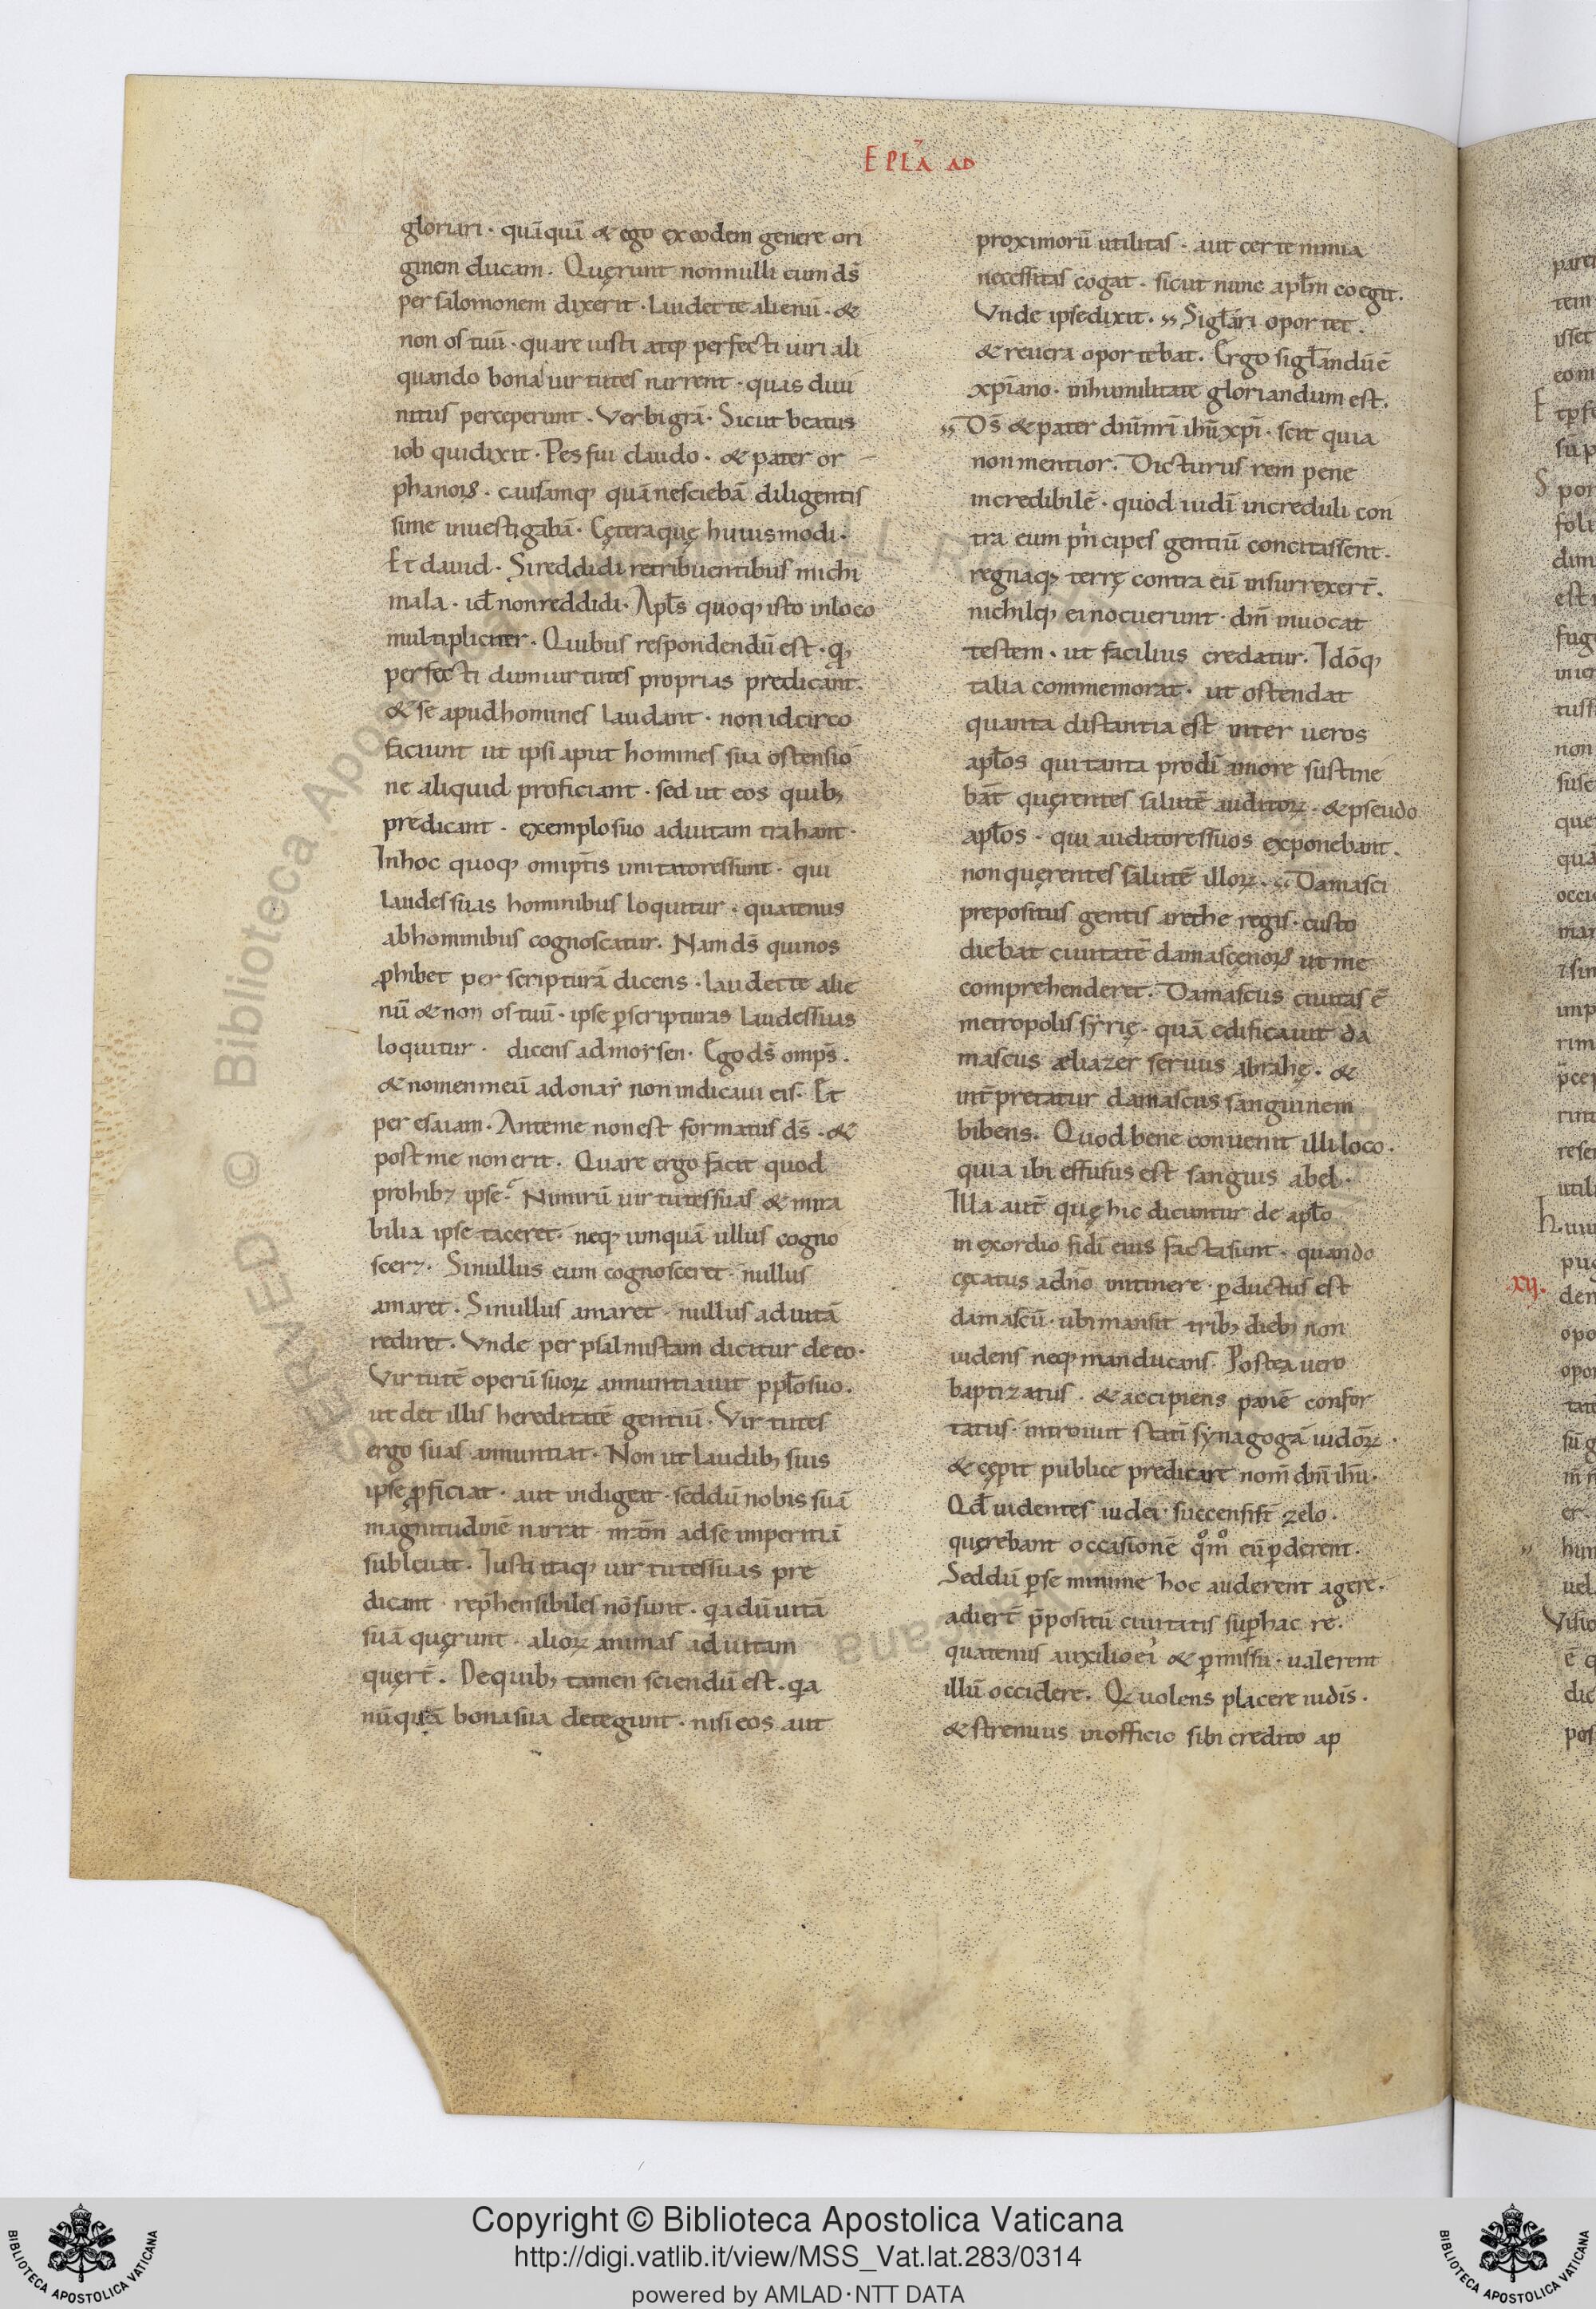 EPLA AD
gloriari · quãquã & ego ex eodem genere ori
ginem ducam. Quęrunt nonnulli cum ds̄
per salomonem dixerit · Laudet te alienū · &
non os tuū · quare iusti atq; perfecti uiri ali
quando bona uirtutes narrent · quas diui
nitus perceperunt · Verbi grā · Sicut beatus
iob qui dixit · Pes fui claudo · & pater or
phanoꝝ · causamq; quā nesciebā diligentis
sime inuestigabā · Cęteraquę huiusmodi ·
Et dauid · Si reddidi retribuentibus michi
mala · id̄ non reddidi · Apl̄s quoq; isto in loco
multipliciter · Quibus respondendū est · q̄
perfecti dum uirtutes proprias predicant ·
& se apud homines laudant · non idcirco
faciunt ut ipsi aput homines sua ostensio
ne aliquid proficiant · sed ut eos quib;
predicant · exemplo suo ad uitam trahant ·
In hoc quoq; omiptīs imitatores sunt · qui
laudes suas hominibus loquitur · quatenus
ab hominibus cognoscatur. Nam ds̄ qui nos
ꝓhibet per scripturā dicens · laudet te alie
nū & non os tuū · ipse ꝑ scripturas laudes suas
loquitur · dicens ad moẏsen · Ego ds̄ omps̄ ·
& nomen meū adonaẏ non indicaui eis · Et
per esaiam · Ante me non est formatus ds̄ · &
post me non erit. Quare ergo facit quod
prohib& ipse? Nimirū uirtutes suas & mira
bilia ipse taceret · neq; umquā ullus cogno
scer&. Si nullus eum cognosceret · nullus
amaret. Si nullus amaret · nullus ad uitā
rediret. Vnde per psalmistam dicitur de eo ·
Virtutē operū suoꝝ annuntiauit ppl̄o suo ·
ut det illis hereditatē gentiū · Virtutes
ergo suas annuntiat · Non ut laudib; suis
ipse ꝓficiat · aut indigeat · sed dū nobis suā
magnitudinē narrat · nrām ad se imperitiā
subleuat. Iusti itaq; uirtutes suas pre
dicant · rep̄hensibiles nō sunt · qa dū uitā
suā quęrunt · alioꝝ animas ad uitam
quęrt̄. De quib; tamen sciendū est · qa
nū quā bona sua detegunt · nisi eos aut
proximorū utilitas · aut certe nimia
necessitas cogat · sicut nunc apl̄m coegit.
Vnde ipse dixit. Si gl̄ari oportet.
& reuera oportebat. Ergo si gl̄andū ē
xp̄iano · in humilitate gloriandum est.
Ds̄ & pater dn̄i nr̄i ih̄u xp̄i · scit quia
non mentior. Dicturus rem pene
incredibilē · quod iudī increduli con
tra eum pͥncipes gentiū concitassent ·
regnaq; terrę contra eū insurrexert̄.
nichilq; ei nocuerunt · dm̄ inuocat
testem · ut facilius credatur. Idōq;
talia commemorat · ut ostendat
quanta distantia est inter ueros
apl̄os qui tanta pro dī amore sustine
bāt quęrentes salutē auditoꝝ · & pseudo
apl̄os · qui auditores suos exponebant ·
non quęrentes salutē illoꝝ. Damasci
prepositus gentis arethe regis · custo
diebat ciuitatē damascenoꝝ ut me
comprehenderet. Damascus ciuitas ē
metropolis sẏrię · quā edificauit da
mascus æliazer seruus abrahę · &
int̄pretatur damascus sanguinem
bibens. Quod bene conuenit illi loco ·
quia ibi effusus est sanguis abel ·
Illa aut̄ quę hic dicuntur de apl̄o
in exordio fidī eius facta sunt · quando
cęcatus a dn̄o in itinere · ꝑductus est
damascū · ubi mansit trib; dieb; non
uidens neq; manducans. Postea uero
baptizatus · & accipiens panē confor
tatus · introiuit statī sẏnagogā iudōꝝ ·
& cępit publice predicare nom̄ dn̄i ih̄u ·
Qd̄ uidentes iudei · succensist̄ zelo ·
quęrebant occasionē qͦmͦ eū ꝑderent.
Sed dū ꝑ se minime hoc auderent agere ·
adiert̄ p̄positū ciuitatis suꝑ hac re ·
quatenus auxilio ei & ꝑmissu · ualerent
illū occidere. Qͥ uolens placere iudīs ·
& strenuus in officio sibi credito ap
xij.
Copyright © Biblioteca Apostolica Vaticana
http://digi.vatlib.it/view/MSS_Vat.lat.283/0314
powered by AMLAD·NTT DATA
BIBLIOTECA APOSTOLICA VATICANA
BIBLIOTECA APOSTOLICA VATICANA